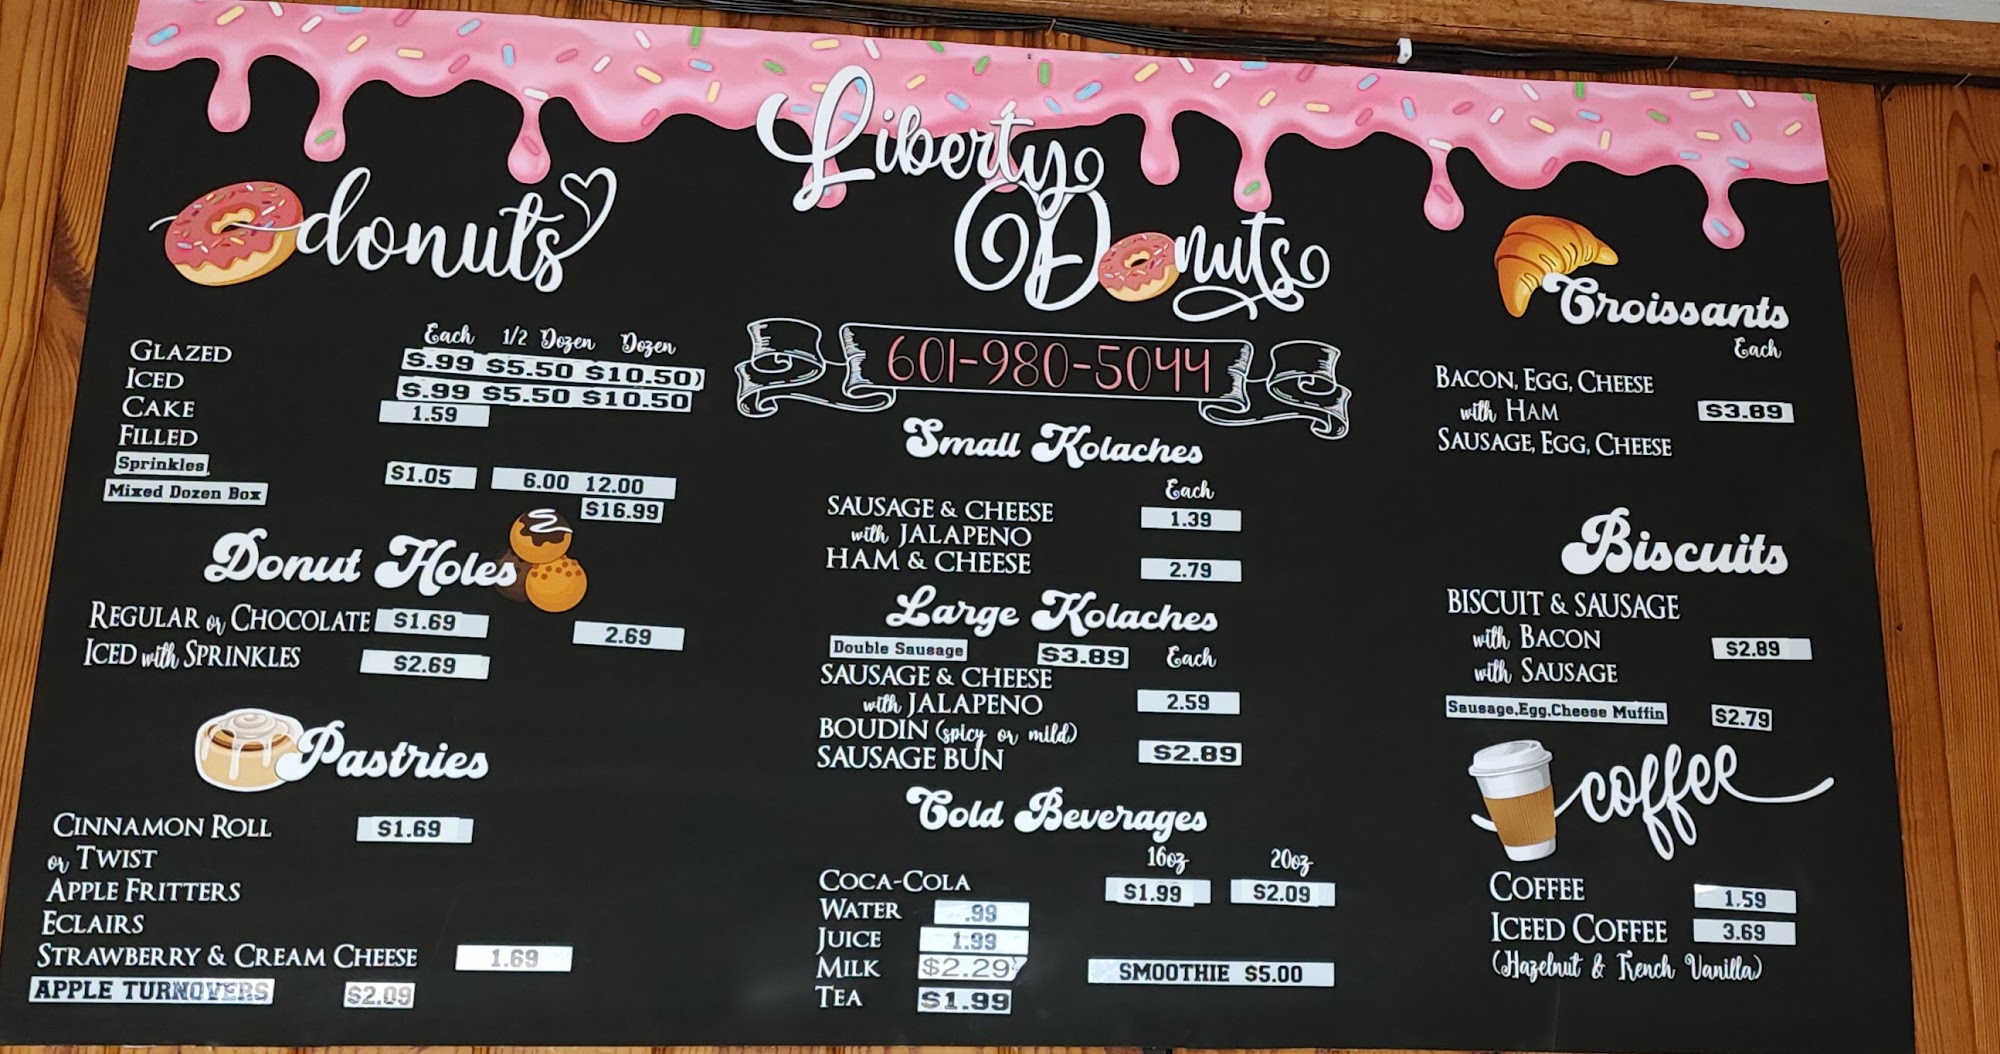 Liberty
Donuts
601-980-5044
donuts
Each 1/2 Dozen Dozen
GLAZED $.99 $5.50 $10.50)
ICED $.99 $5.50 $10.50
CAKE 1.59
FILLED
Sprinkles $1.05 6.00 12.00
Mixed Dozen Box $16.99
Donut Holes
REGULAR or CHOCOLATE $1.69 2.69
ICED with SPRINKLES $2.69
Pastries
CINNAMON ROLL $1.69
or TWIST
APPLE FRITTERS
ECLAIRS
STRAWBERRY & CREAM CHEESE 1.69
APPLE TURNOVERS $2.09
Small Kolaches
Each
SAUSAGE & CHEESE 1.39
with JALAPENO
HAM & CHEESE 2.79
Large Kolaches
Double Sausage $3.89 Each
SAUSAGE & CHEESE
with JALAPENO 2.59
BOUDIN (spicy or mild)
SAUSAGE BUN $2.89
Cold Beverages
16oz 20oz
COCA-COLA $1.99 $2.09
WATER .99
JUICE 1.99
MILK $2.29
SMOOTHIE $5.00
TEA $1.99
Croissants
Each
BACON, EGG, CHEESE
with HAM $3.89
SAUSAGE, EGG, CHEESE
Biscuits
BISCUIT & SAUSAGE
with BACON $2.89
with SAUSAGE
Sausage,Egg,Cheese Muffin $2.79
coffee
COFFEE 1.59
ICEED COFFEE 3.69
(Hazelnut & French Vanilla)